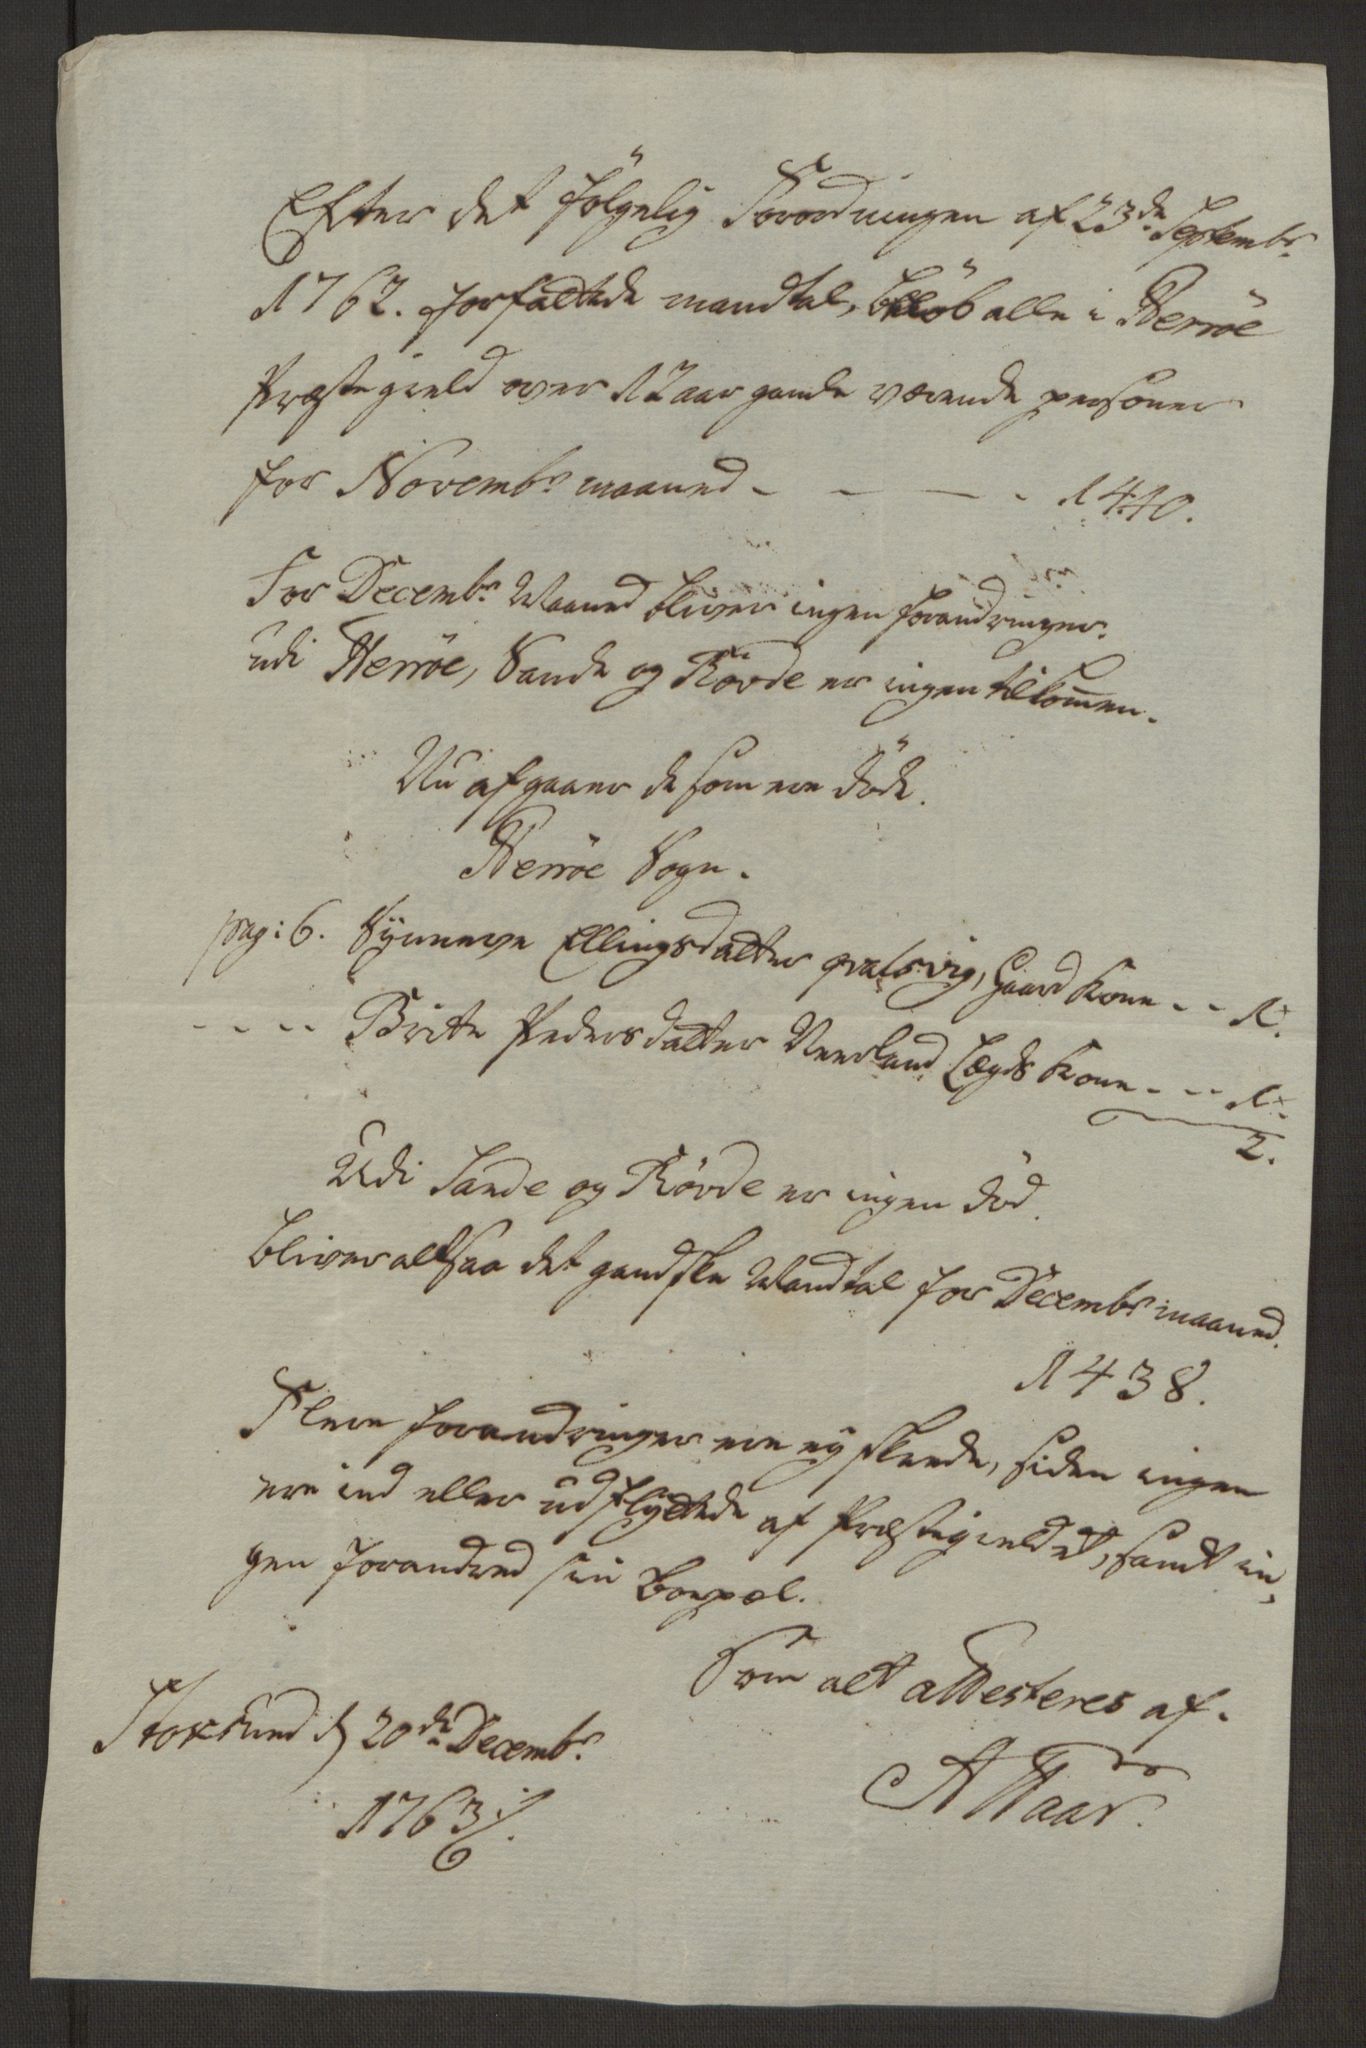 Efter det fölgelig Forordningen af 23de Septembr
1762. forfattede mandtal, beløb alle i Herröe
Præstegield over 12 aar gamle værende personer
for Novembr maaned - - - - 1440.
For Decembr Maaned bliver ingen forandringer.
udi Herröe, Sande og Røvde er ingen tilkom̄en.
Nu afgaaer de som ere döde.
Herröe Sogn.
pag: 6. Synneve Ellingsdatter qvalsvig, Gaard Kone - - 1.
- - - - Brite Pedersdatter Neerland Lægds Kone - - - 1.
2.
Udi Sande og Røvde er ingen död.
bliver altsaa det gandske Mandtal for Decembr maaned.
1438.
Flere forandringer ere ey skeede, siden ingen
ere ind eller udflyttede af Præstegieldet, samt in,
gen forandred sin boepæl.
Som alt attesteres af.
Stoksund d 20de Decembr
1763